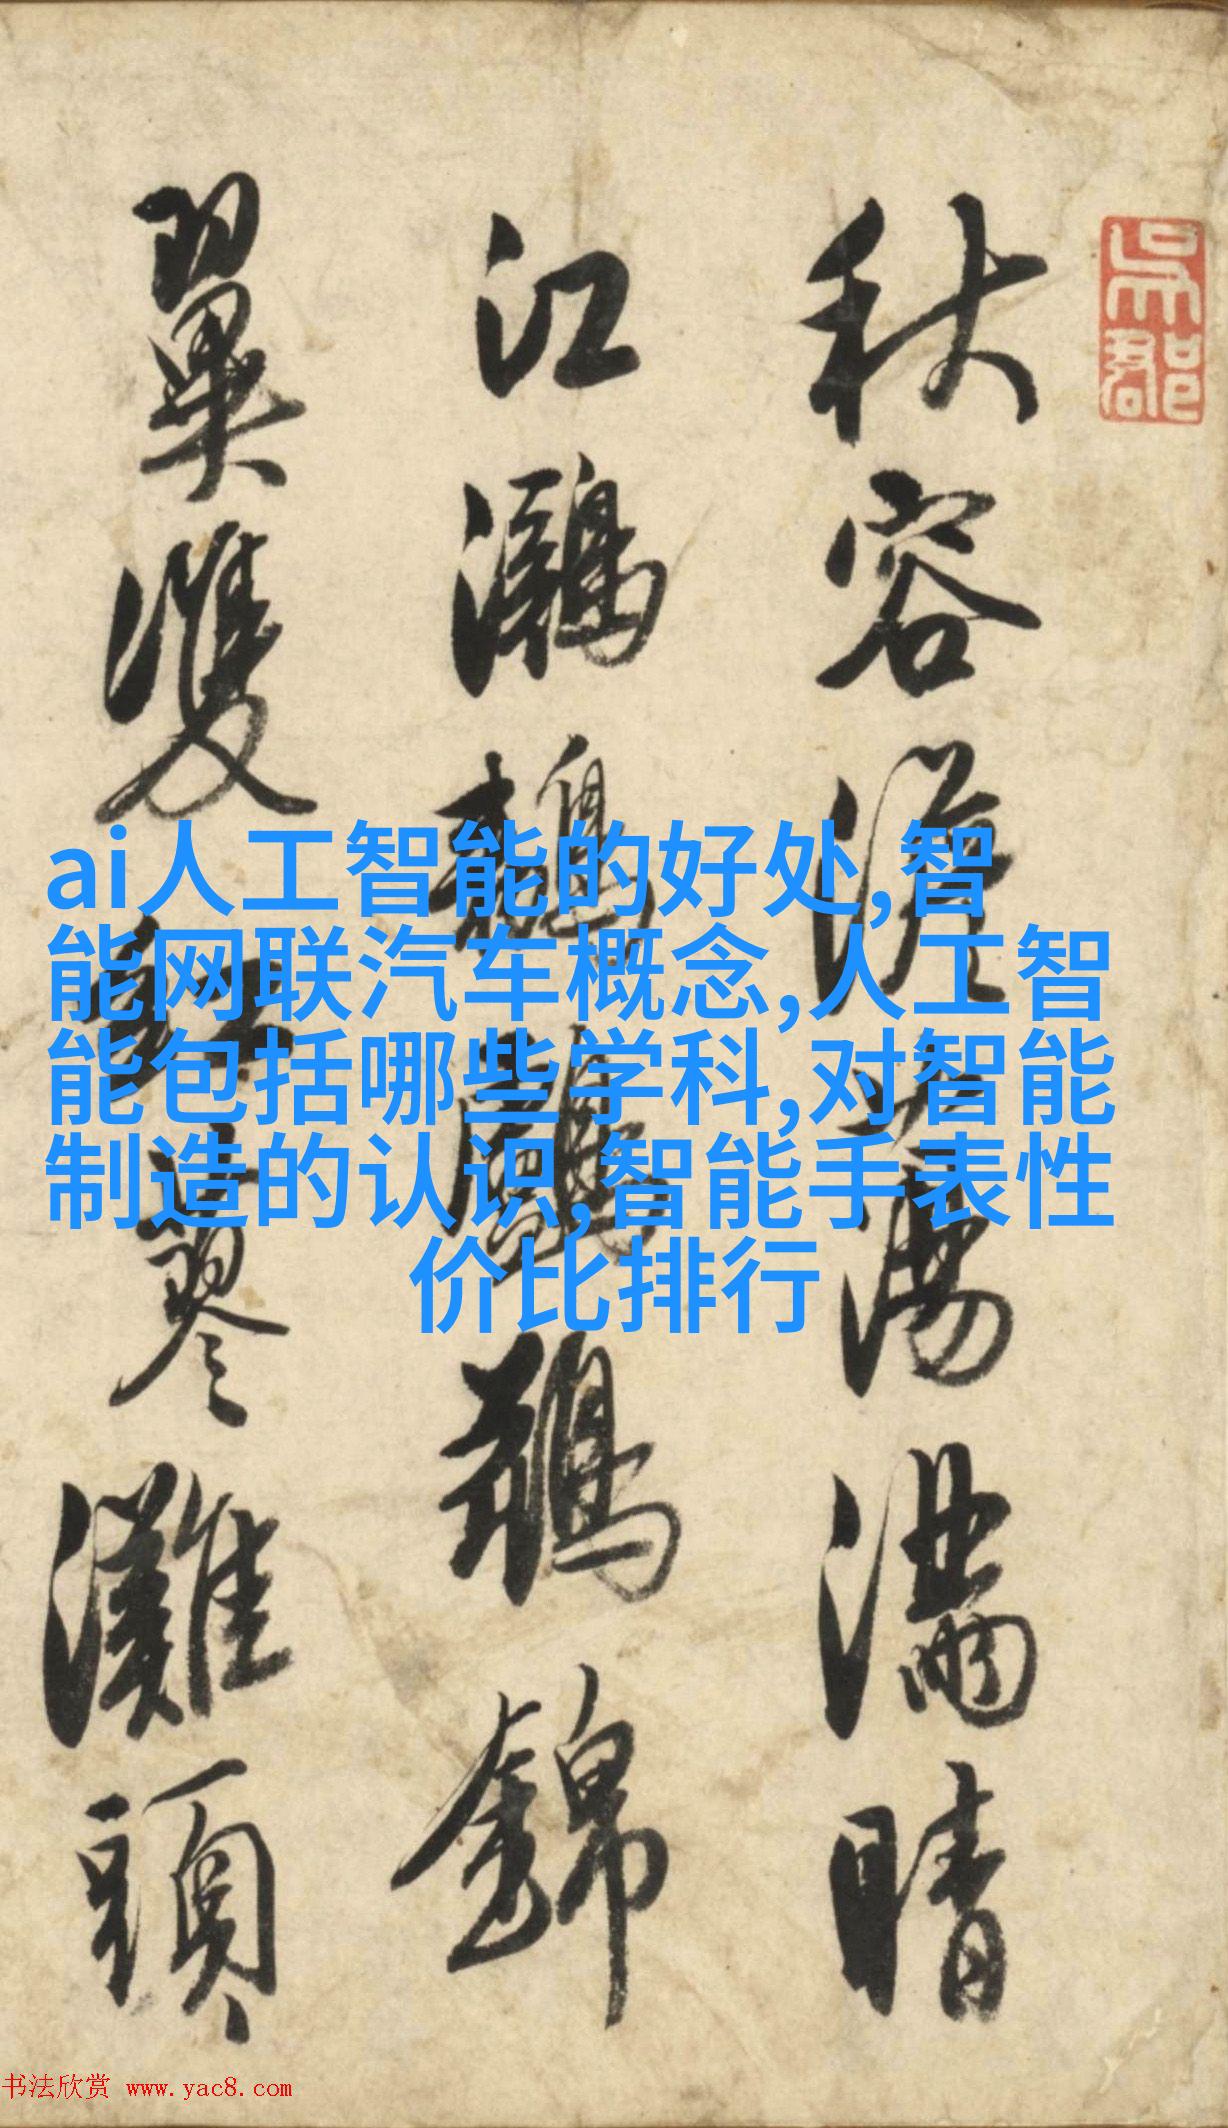 吳郡
秋容澹蕩滿晴
江鸂鶒鸕鷀錦
翼雙紅蓼灘頭
ai人工智能的好处,智
能网联汽车概念,人工智
能包括哪些学科,对智能
制造的认识,智能手表性
价比排行
书法欣赏 www.yac8.com